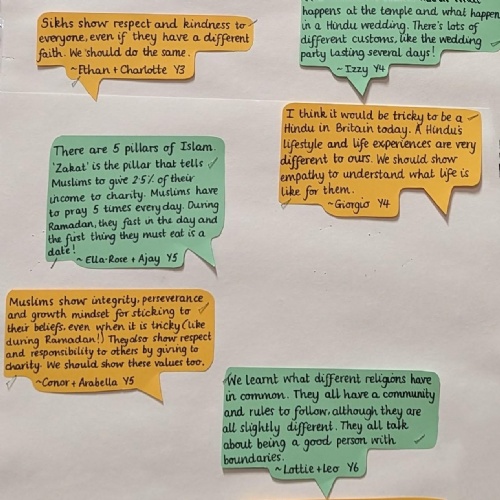 Sikhs show respect and kindness to
everyone, even if they have a different
faith. We should do the same.
~Ethan + Charlotte Y3
happens at the temple and what happen
in a Hindu wedding. There's lots of
different customs, like the wedding
party lasting several days!
~ Izzy Y4
I think it would be tricky to be a
Hindu in Britain today. A Hindu's
lifestyle and life experiences are very
different to ours. We should show
empathy to understand what life is
like for them.
~Giorgio Y4
There are 5 pillars of Islam.
'Zakat' is the pillar that tells
Muslims to give 2.5% of their
income to charity. Muslims have
to pray 5 times everyday. During
Ramadan, they fast in the day and
the first thing they must eat is a
date!
~ Ella-Rose + Ajay Y5
Muslims show integrity, perseverance
and growth mindset for sticking to
their beliefs, even when it is tricky (like
during Ramadan!) They also show respect
and responsibility to others by giving to
charity. We should show these values too.
~Conor + Arabella Y5
We learnt what different religions have
in common. They all have a community
and rules to follow, although they are
all slightly different. They all talk
about being a good person with
boundaries.
~ Lottie + Leo Y6